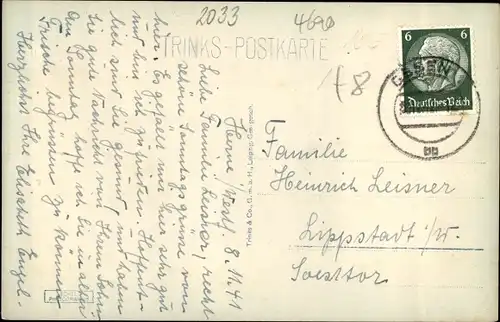 2033
4690
TRINKS-POSTKARTE
6
Deutsches Reich
bb
Herne/Westf. 8.11.41
Liebe Familie Leisner, recht
schöne Sonntagsgrüße von
hier. Es gefällt uns hier sehr gut
und sind ich zufrieden. Hoffent-
lich sind Sie gesund und haben
Sie gute Nachricht von Ihrem Sohn
Am Sonntag hoffe ich Sie in alter
Frische begrüssen zu können
Herzlichst Ihre Elisabeth Engel.
Trinks & Co., G. m. b. H., Leipzig
Familie
Heinrich Leisner
Lippstadt i/W.
Soesttor